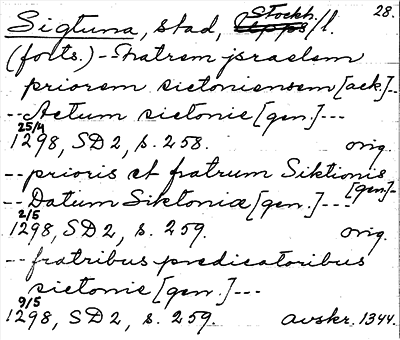 28.
Sigtuna, stad, Stockh./l.
(forts.) -- fratrem jsraelem
priorem sictoniensem [ack.] --
-- Actum sictonie [gen.] ---
25/4
1298, SD 2, s. 258. orig.
-- prioris et fratrum Siktionis [gen.] --
-- Datum Siktoniæ [gen.] ---
2/5
1298, SD 2, s. 259. orig.
-- fratribus predicatoribus
sictonie [gen.] ---
9/5
1298, SD 2, s. 259. avskr. 1344.